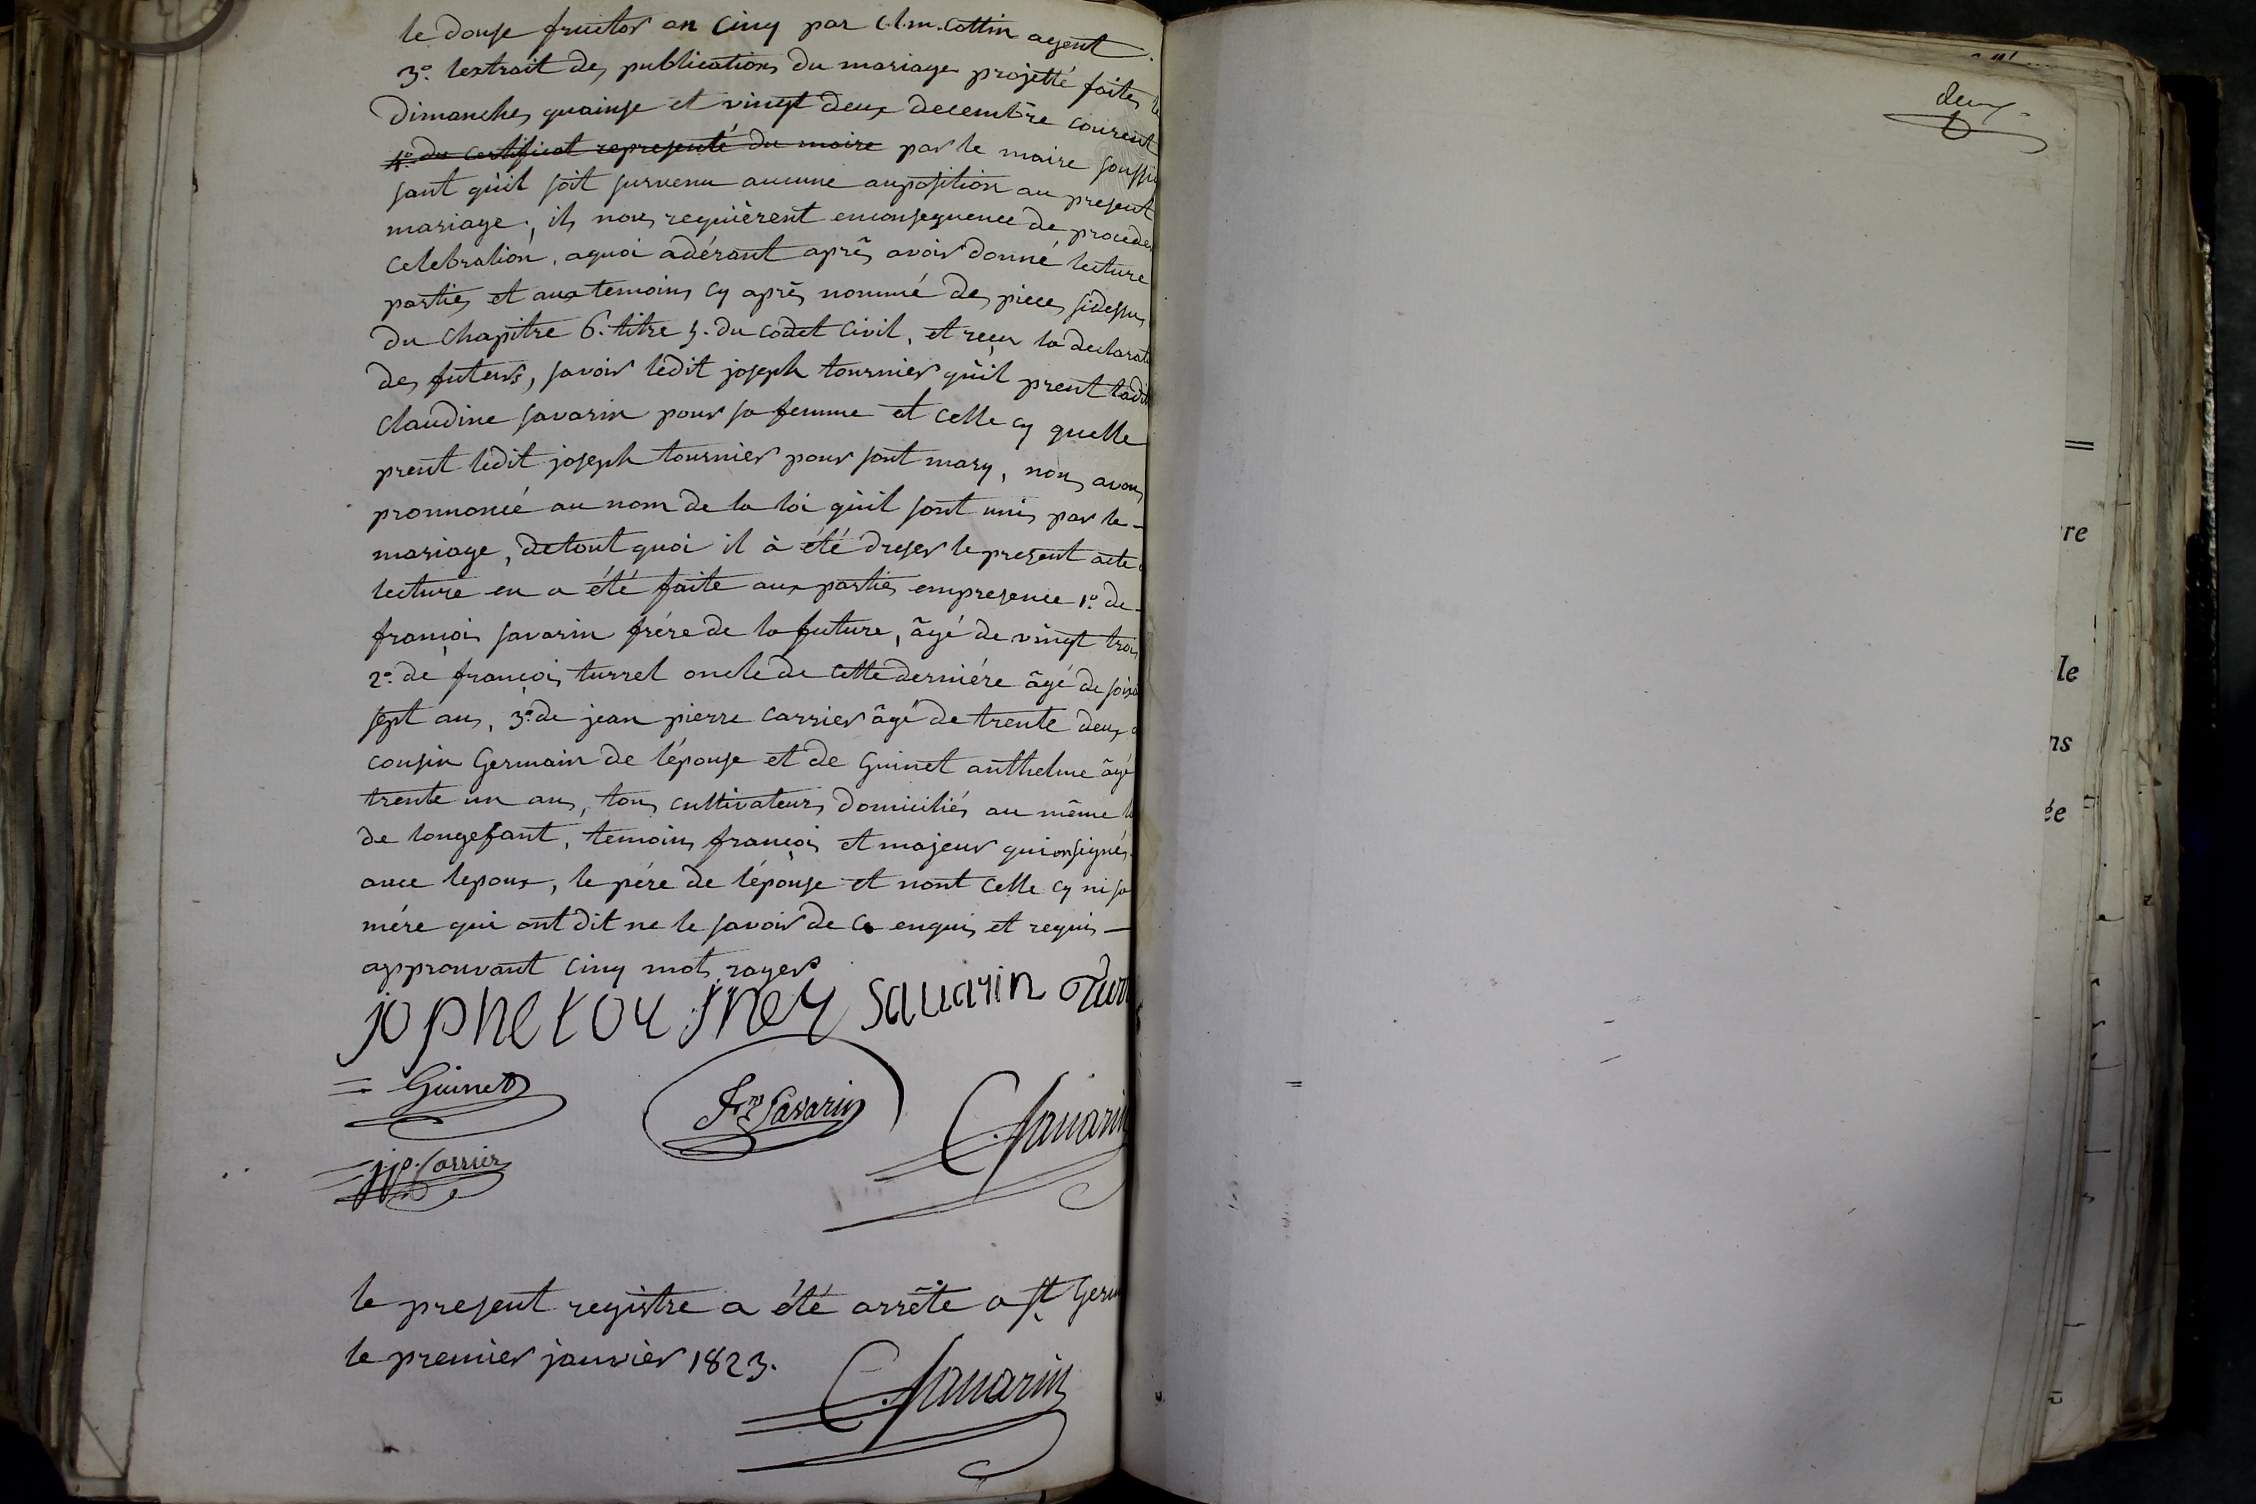 le douse fruitor an Cinq par C.l.m. Cottin agent
3.º lextrait des publications du mariage projetté faites le
Dimanches quainse et vingt deux decembre courent
4.º du certificat representé du maire par le maire soussi
sant qu'il soit survenu aucune auposition au present
mariage, ils nous requièrent enconsequence de proceder
Celebration, aquoi adérant après avoir donné lecture
parties et aux temoins cy après nommé des pieces sidessus
du Chapitre 6. titre 5. du codet Civil, et reçu la declarat
des futeurs, savoir ledit joseph tournier qu'il prent ladi
Claudine savarin pour sa femme et Celle cy quelle
prent ledit joseph tournier pour sont mary, nous avons
pronnoncé au nom de la loi qu'il sont unis par le
mariage, detout quoi il à été dreser le present acte
lecture en a été faite aux parties empresence 1.º de
françois savarin frére de la future, âgé de vingt trois
2.º de françois turrel oncle de cette derniére âgé de soixa
sept ans, 3.º de jean pierre carrier âgé de trente deux a
cousin Germain de l'épouse et de Guinet anthelme âgé
trente un ans, tous cultivateurs domiciliés au même l
de longefant, temoins françois et majeur qui onsignés
avec lepoux, le pére de l'épouse et nont Celle cy ni sa
mére qui ont dit ne le savoir de ce enquis et requis
approuvant Cinq mots rayers
jophe tournier savarin Turr
Guinet
fr.s Savarin
C. Savarin
jp. Carrier
le present registre a été arrête a st Germ
le premier janvier 1823.
C. Savarin
deux
re
le
ns
ée